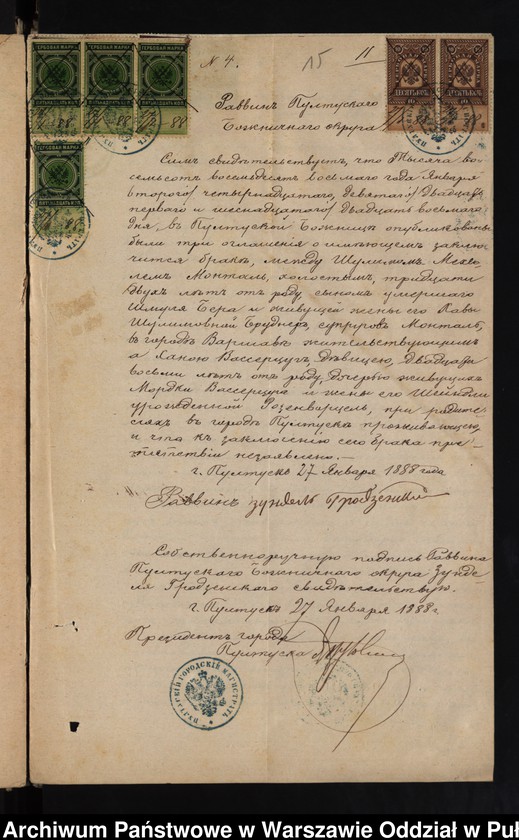 ГЕРБОВАЯ МАРКА ГЕРБОВАЯ МАРКА ГЕРБОВАЯ МАРКА
ПЯТЬНАДЦАТЬ КОП.
ГЕРБОВАЯ МАРКА
ПЯТЬНАДЦАТЬ КОП.
ДЕСЯТЬ КОП. ДЕСЯТЬ КОП.
N 4. 15 11
Раввинъ Пултускаго
Божничнаго округа
Симъ свидѣтельствуетъ, что Тысяча во-
семьсотъ восемьдесятъ восьмаго года Января
втораго/четырнадцатаго, девятаго/двадцать
перваго и шеснадцатаго/двадцать восьмаго
дня, въ Пултуской Божницѣ опубликованы
были три оглашенія о имѣющемъ заклю-
чится бракѣ, между Шулимомъ
Монталь, холостымъ, тридцати
двухъ лѣтъ отъ роду, сыномъ умершаго
Шмуля Бера и живущей жены его Хавы
Шулимовной супруговъ Монталь,
въ городѣ Варшавѣ жительствующимъ
а Ханою Вассерцугъ, дѣвицею, двадцать
восьми лѣтъ отъ роду, дочерью живущихъ
Мордки Вассерцуга и жены его Шейндли
урожденной Розенварцель, при родите-
ляхъ въ городѣ Пултускѣ проживающею,
и что къ заключенію сего брака пре-
пятствій незаявлено.—
г. Пултускъ 27 Января 1888 года
Раввинъ Зундель Гродзенскій
Собственноручную подпись Раввина
Пултускаго Божничнаго округа Зунде-
ля Гродзенскаго свидѣтельствую.
г. Пултускъ 27 Января 1888 г
Президентъ города
Пултуска
ПУЛТУСКІЙ ГОРОДСКІЙ МАГИСТРАТЪ
Archiwum Państwowe w Warszawie Oddział w Puł